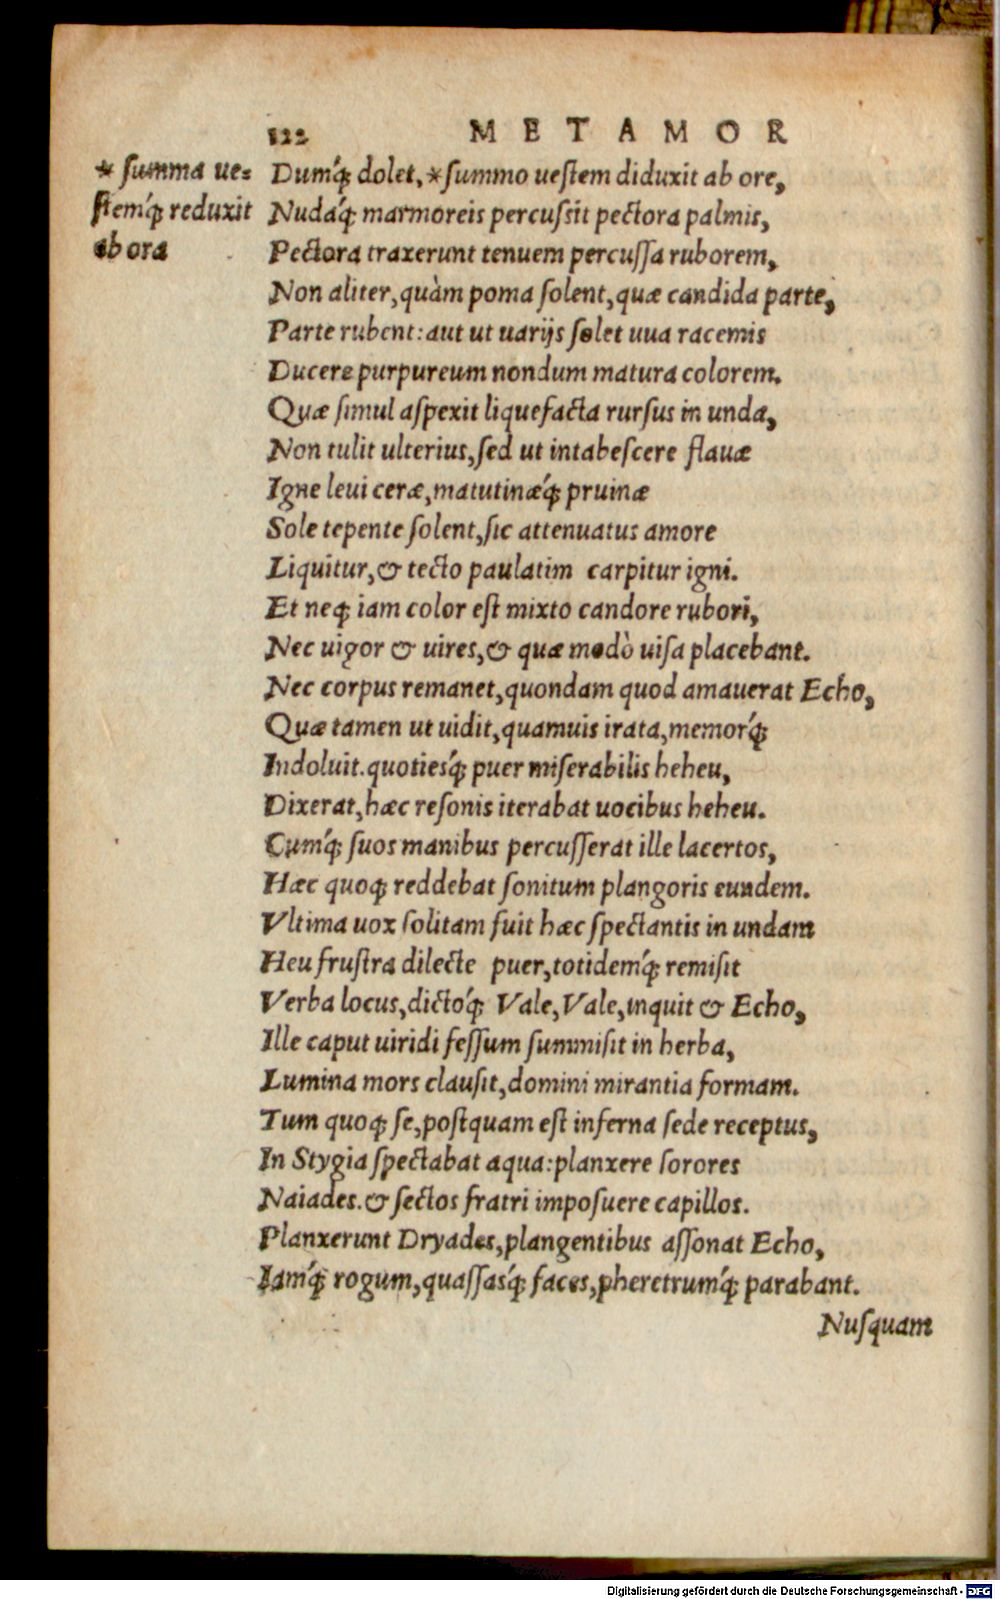 122 METAMOR
* summa ue=
stemq́; reduxit
ab ora
Dumq́; dolet, *summo uestem diduxit ab ore,
Nudaq́; marmoreis percussit pectora palmis,
Pectora traxerunt tenuem percussa ruborem,
Non aliter, quàm poma solent, quæ candida parte,
Parte rubent: aut ut uarijs solet uua racemis
Ducere purpureum nondum matura colorem.
Quæ simul aspexit liquefacta rursus in unda,
Non tulit ulterius, sed ut intabescere flauæ
Igne leui ceræ, matutinæq́; pruinæ
Sole tepente solent, sic attenuatus amore
Liquitur, & tecto paulatim carpitur igni.
Et neq; iam color est mixto candore rubori,
Nec uigor & uires, & quæ modò uisa placebant.
Nec corpus remanet, quondam quod amauerat Echo,
Quæ tamen ut uidit, quamuis irata, memorq́;
Indoluit. quotiesq́; puer miserabilis heheu,
Dixerat, hæc resonis iterabat uocibus heheu.
Cumq́; suos manibus percusserat ille lacertos,
Hæc quoq; reddebat sonitum plangoris eundem.
Vltima uox solitam fuit hæc spectantis in undam
Heu frustra dilecte puer, totidemq́; remisit
Verba locus, dictoq́; Vale, Vale, inquit & Echo,
Ille caput uiridi fessum summisit in herba,
Lumina mors clausit, domini mirantia formam.
Tum quoq; se, postquam est inferna sede receptus,
In Stygia spectabat aqua: planxere sorores
Naiades. & sectos fratri imposuere capillos.
Planxerunt Dryades, plangentibus assonat Echo,
Iamq́; rogum, quassasq́; faces, pheretrumq́; parabant.
Nusquam
Digitalisierung gefördert durch die Deutsche Forschungsgemeinschaft - DFG